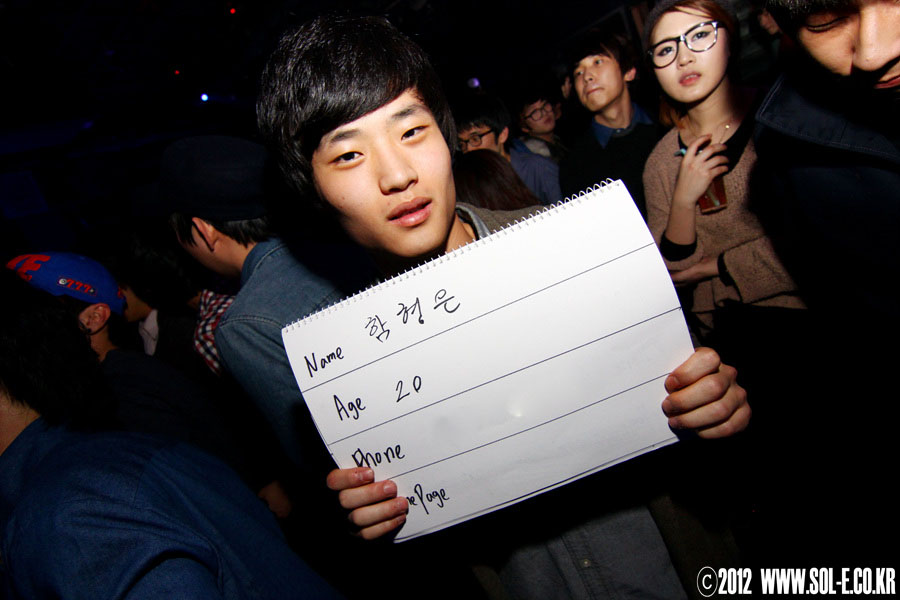 Name 함형은
Age 20
Phone
mePage
777
©2012 WWW.SOL-E.CO.KR